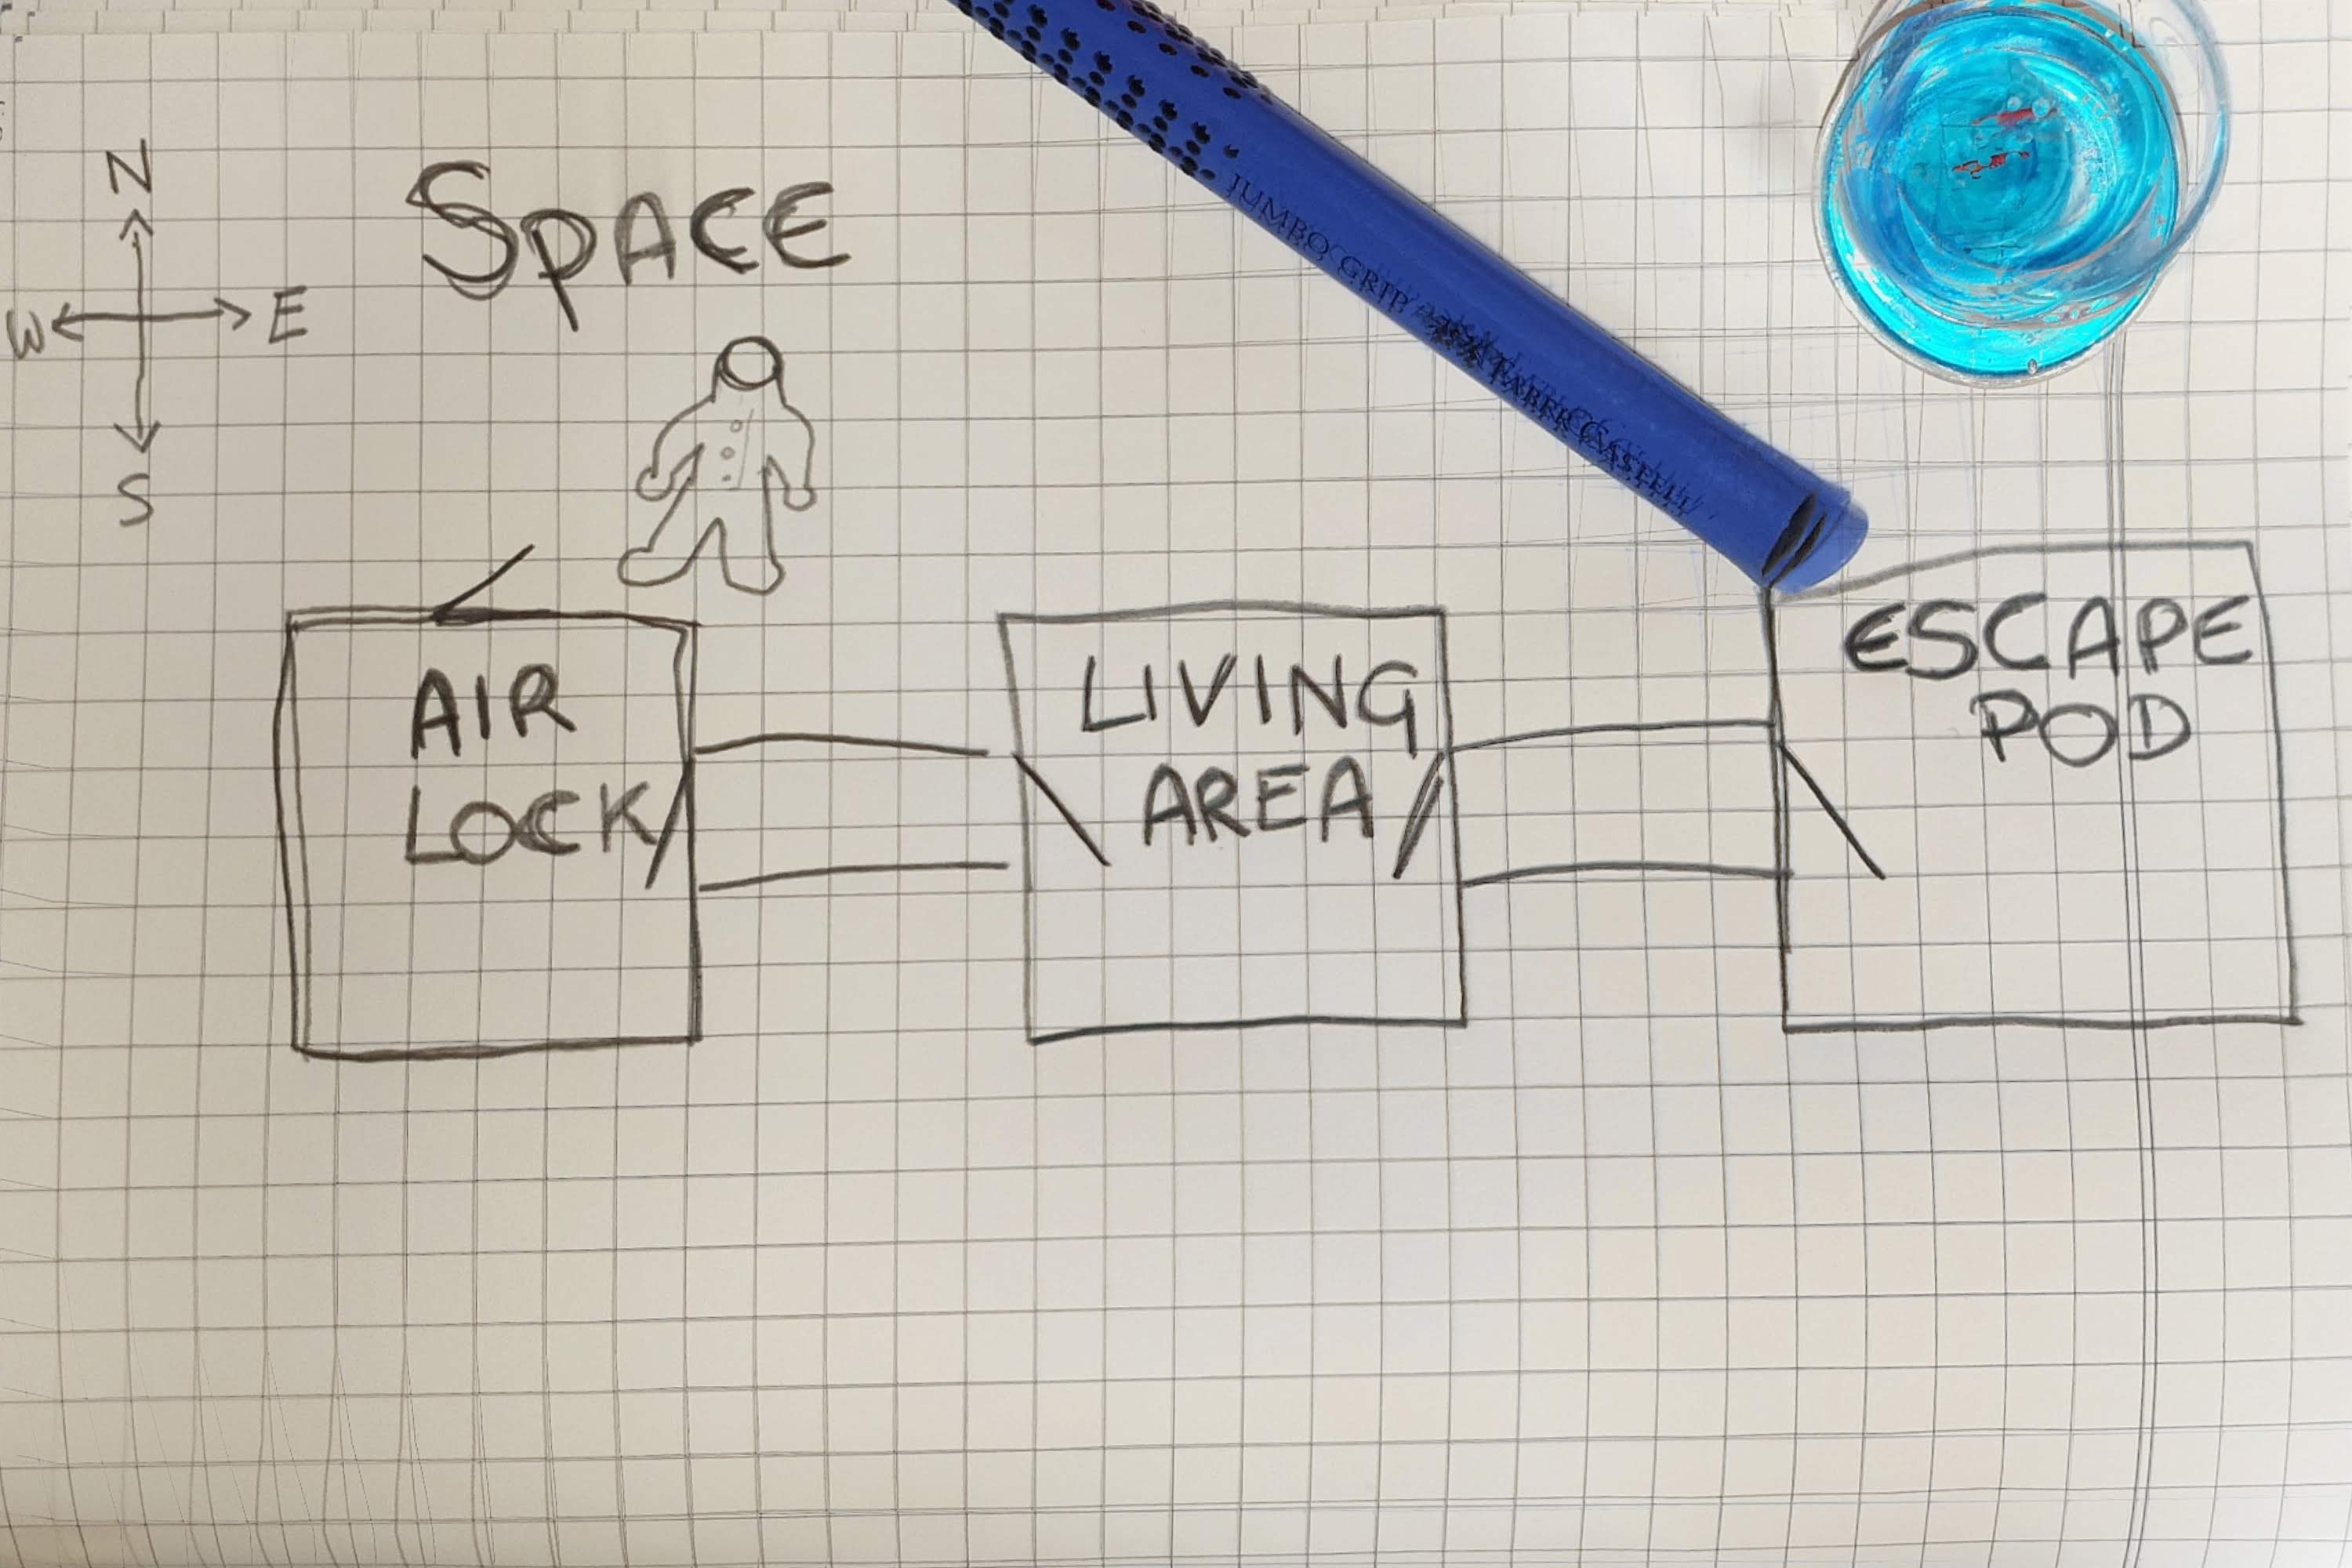 N
W E
S
SPACE
JUMBO GRIP
FABER CASTELL
AIR
LOCK
LIVING
AREA
ESCAPE
POD